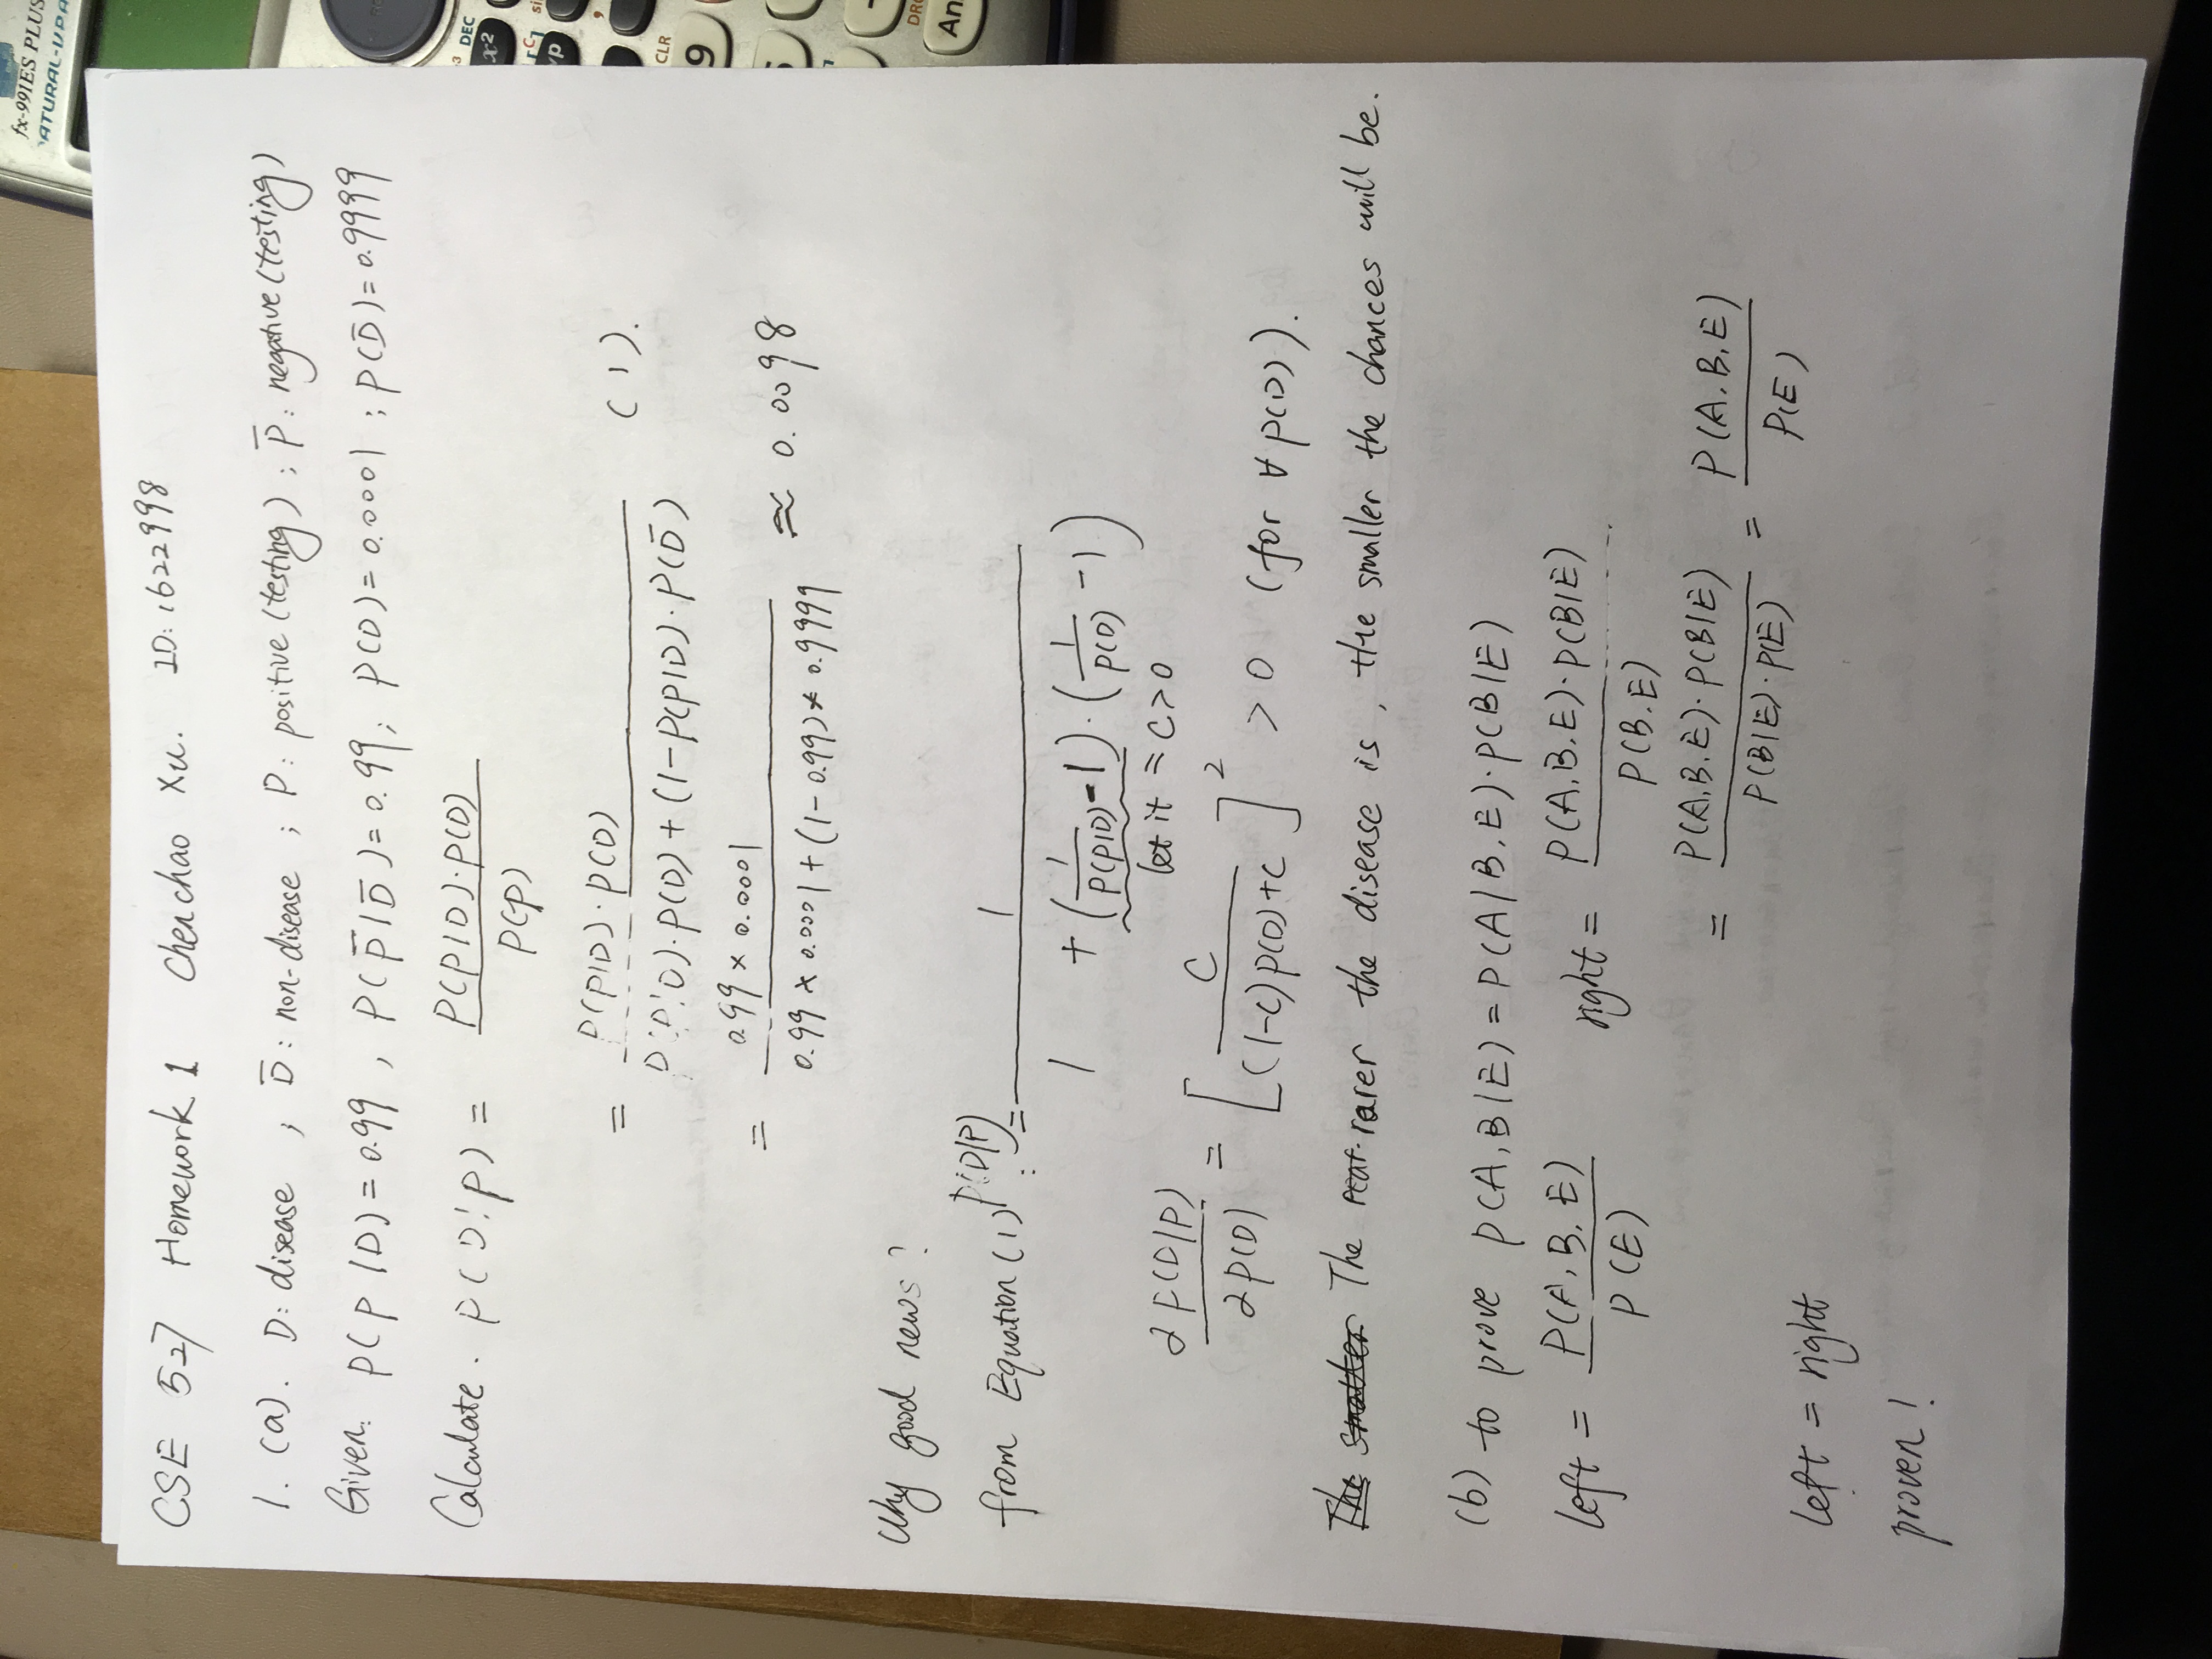 fx-991ES PLUS
NATURAL-V.P.A
CSE 527 Homework 1 Chenchao Xu. ID: 1622998
1. (a). D: disease ; D̅ : non-disease ; P: positive (testing) ; P̅: negative (testing)
Given: P(P|D) = 0.99 , P(P̅|D̅) = 0.99; P(D) = 0.0001 ; P(D̅) = 0.9999
Calculate. P(D|P) = P(P|D)·P(D) / P(P)
= P(P|D)·P(D) / P(P|D)·P(D) + (1-P(P|D)·P(D̅) (1).
= 0.99 × 0.0001 / 0.99 × 0.0001 + (1-0.99) × 0.9999 ≈ 0.0098
Why good news?
from Equation (1): P(D|P) = 1 / 1 + (1/P(P|D) - 1)·(1/P(D) - 1)
let it = C > 0
∂P(D|P) / ∂P(D) = [C / (1-C)P(D)+C]² > 0 (for ∀ P(D)).
The smaller The rear. rarer the disease is, the smaller the chances will be.
(b) to prove P(A,B|E) = P(A|B,E)·P(B|E)
left = P(A,B,E) / P(E) right = P(A,B,E)·P(B|E) / P(B,E)
= P(A,B,E)·P(B|E) / P(B|E)·P(E) = P(A,B,E) / P(E)
left = right
proven!
DEC
x²
CLR
9
An